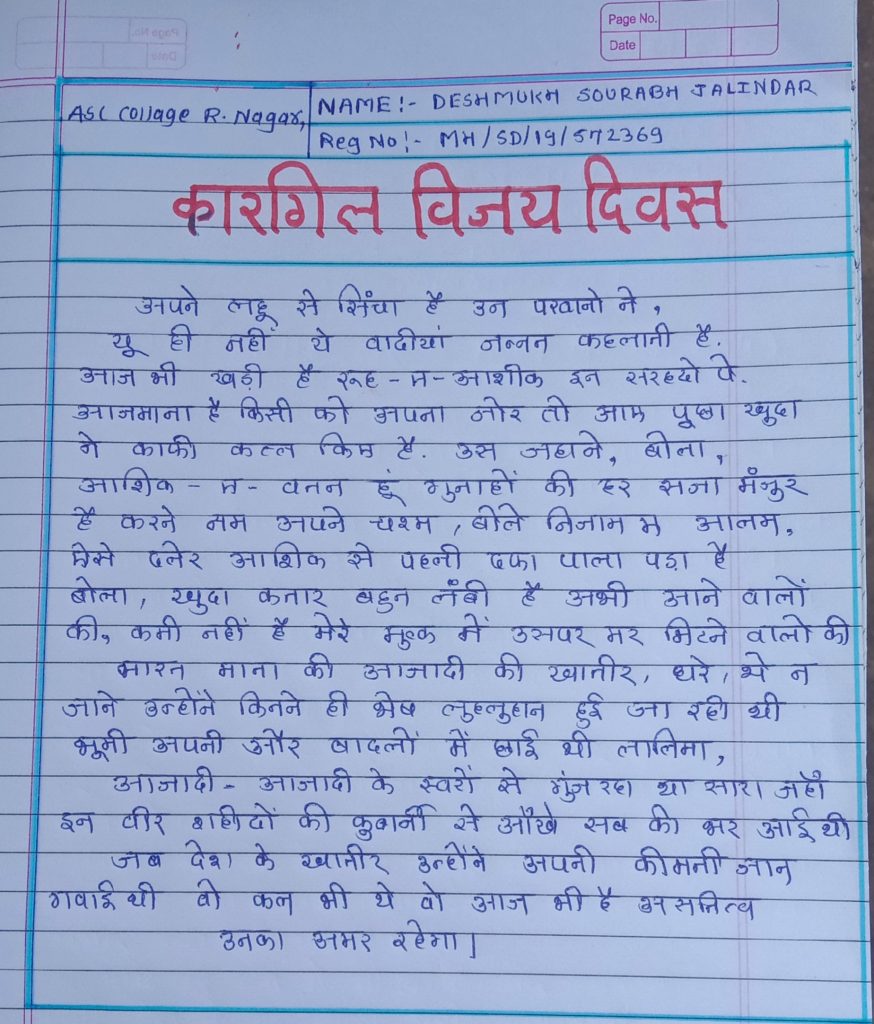 Page No.
Date
ASC Collage R. Nagar,
NAME :- DESHMUKH SOURABH JALINDAR
Reg No :- MH/SD/19/572369
कारगिल विजय दिवस
अपने लहू से सिंचा है उन परवानो ने,
यू ही नहीं ये वादीयां जन्नन कहलानी है.
आज भी खड़ी है रूह-म-आशीक इन सरहदो पे.
आजमाना है किसी को अपना जोर तो आम पूछा खुदा
ने काफी कत्ल किम है. उस जहाने, बोला,
आशिक-म-वनन हूं गुनाहों की हर सजा मंजुर
है करने नम अपने चश्म, बोले निजाम म आलम,
मेसे दलेर आशिक से पहली दफा पाला पड़ा है
बोला, खुदा कनार बहुन लंबी है अभी आने वालों
की, कमी नहीं है मेरे मुल्क में उसपर मर मिटने वालो की
भारन माना की आजादी की खानीर, धरे, थे न
जाने उन्होंने किनने ही भेष लुहलुहान हुई जा रही थी
भूमी अपनी और बादलों में छाई थी लालिमा,
आजादी - आजादी के स्वरों से गुंज रहा था सारा जहाँ
इन वीर शहीदों की कुबार्नी से आँखे सब की भर आई थी
जब देश के खानीर उन्होंने अपनी कीमनी जान
गवाई थी वो कल भी थे वो आज भी है असनित्व
उनका अमर रहेगा।